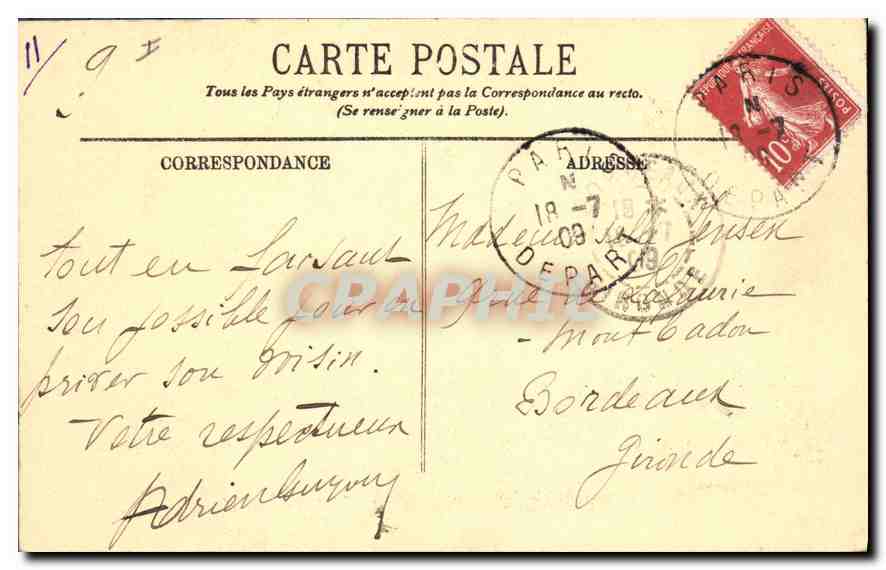 11/ 9
CARTE POSTALE
Tous les Pays étrangers n'acceptent pas la Correspondance au recto.
(Se renseigner à la Poste).
CORRESPONDANCE
ADRESSE
Tout en faisant
son possible pour en
priver son voisin.
Votre respectueux
Adrien
Mademoiselle Jensen
de
Bordeaux
Gironde
REPUBLIQUE FRANÇAISE
POSTES
10c
PARIS N
18 -7
DEPART
PARIS
N
18 -7
09
DEPART
BORDEAUX
09
GIRONDE
CPAPHIL